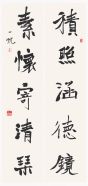 積照涵德鏡
素懷寄清琴